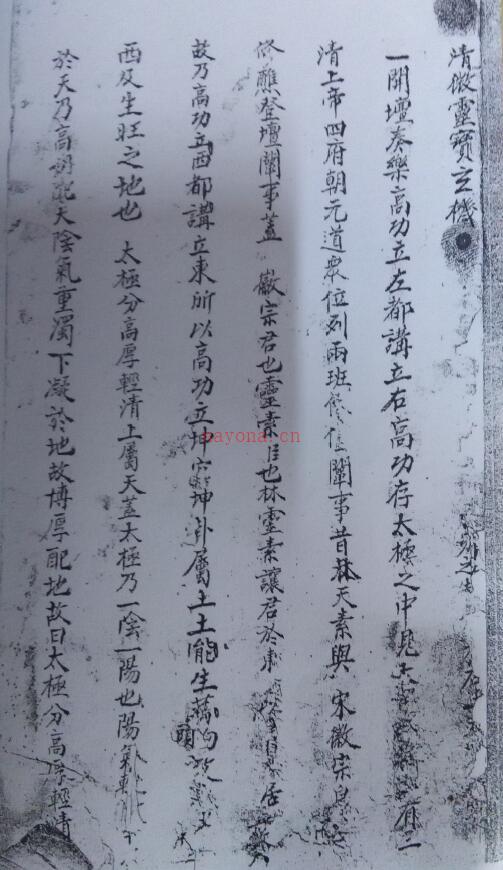 清微靈寶玄機
一開壇奏樂高功立左都講立右高功存太極之中見
清上帝四府朝元道眾位列兩班修信關事昔林天素與 宋徽宗皇
修醮登壇關事蓋 徽宗君也靈素臣也林靈素讓君於東 居
故乃高功立西都講立東所以高功立坤宮坤卦屬土土能生萬物故
西反生旺之地也 太極分高厚輕清上屬天蓋太極乃一陰一陽也陽氣輕
於天乃高明配天陰氣重濁下凝於地故博厚配地故曰太極分高厚輕清
payona.cn